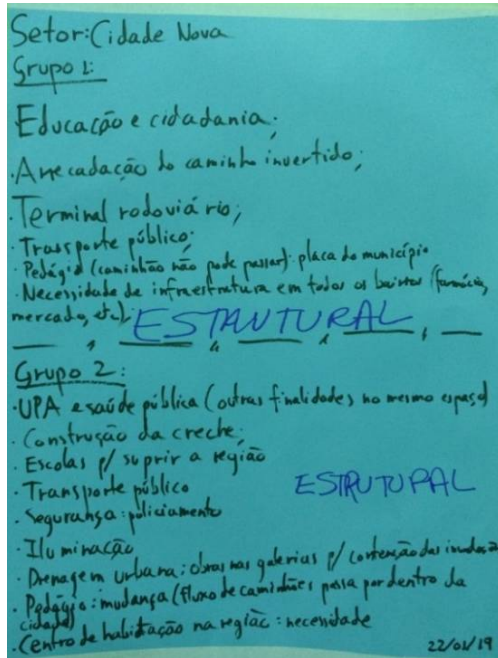 Setor: Cidade Nova
Grupo 1:
Educação e cidadania;
· Arrecadação do caminho invertido;
· Terminal rodoviário;
· Transporte público;
· Pedágio (caminhão não pode passar): placa do município
· Necessidade de infraestrutura em todos os bairros (farmácia,
mercado, etc).
ESTANTURAL
Grupo 2:
· UPA e saúde pública (outras finalidades no mesmo espaço)
· Construção da creche;
· Escolas p/ suprir a região
· Transporte público
ESTRUTUPAL
· Segurança: policiamento
· Iluminação
· Drenagem urbana: obras nas galerias p/ contenção das
· Pedágio: mudança (fluxo de caminhões passa por dentro da
cidade)
· Centro de habitação na região: necessidade
22/01/19